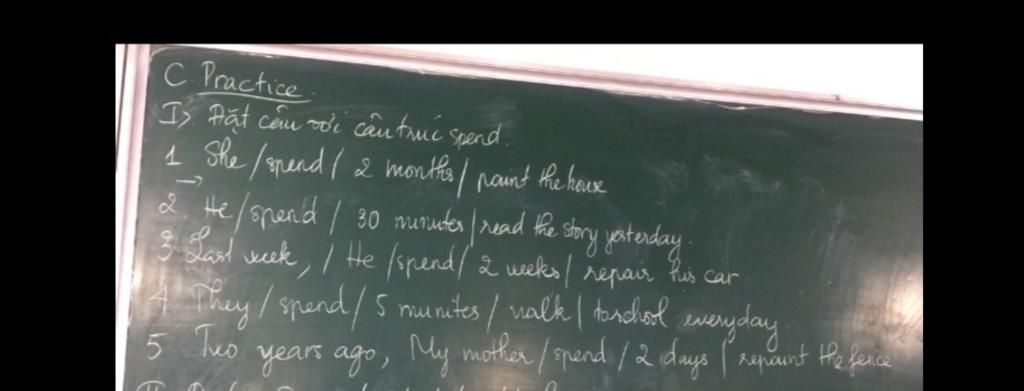 C. Practice
I> Đặt câu với cấu trúc spend.
1 She / spend / 2 months / paint the house
→
2 He / spend / 30 minutes / read the story yesterday.
3 Last week, / He / spend / 2 weeks / repair his car
4 They / spend / 5 munites / walk / to school everyday.
5 Two years ago, My mother / spend / 2 days / repaint the fence